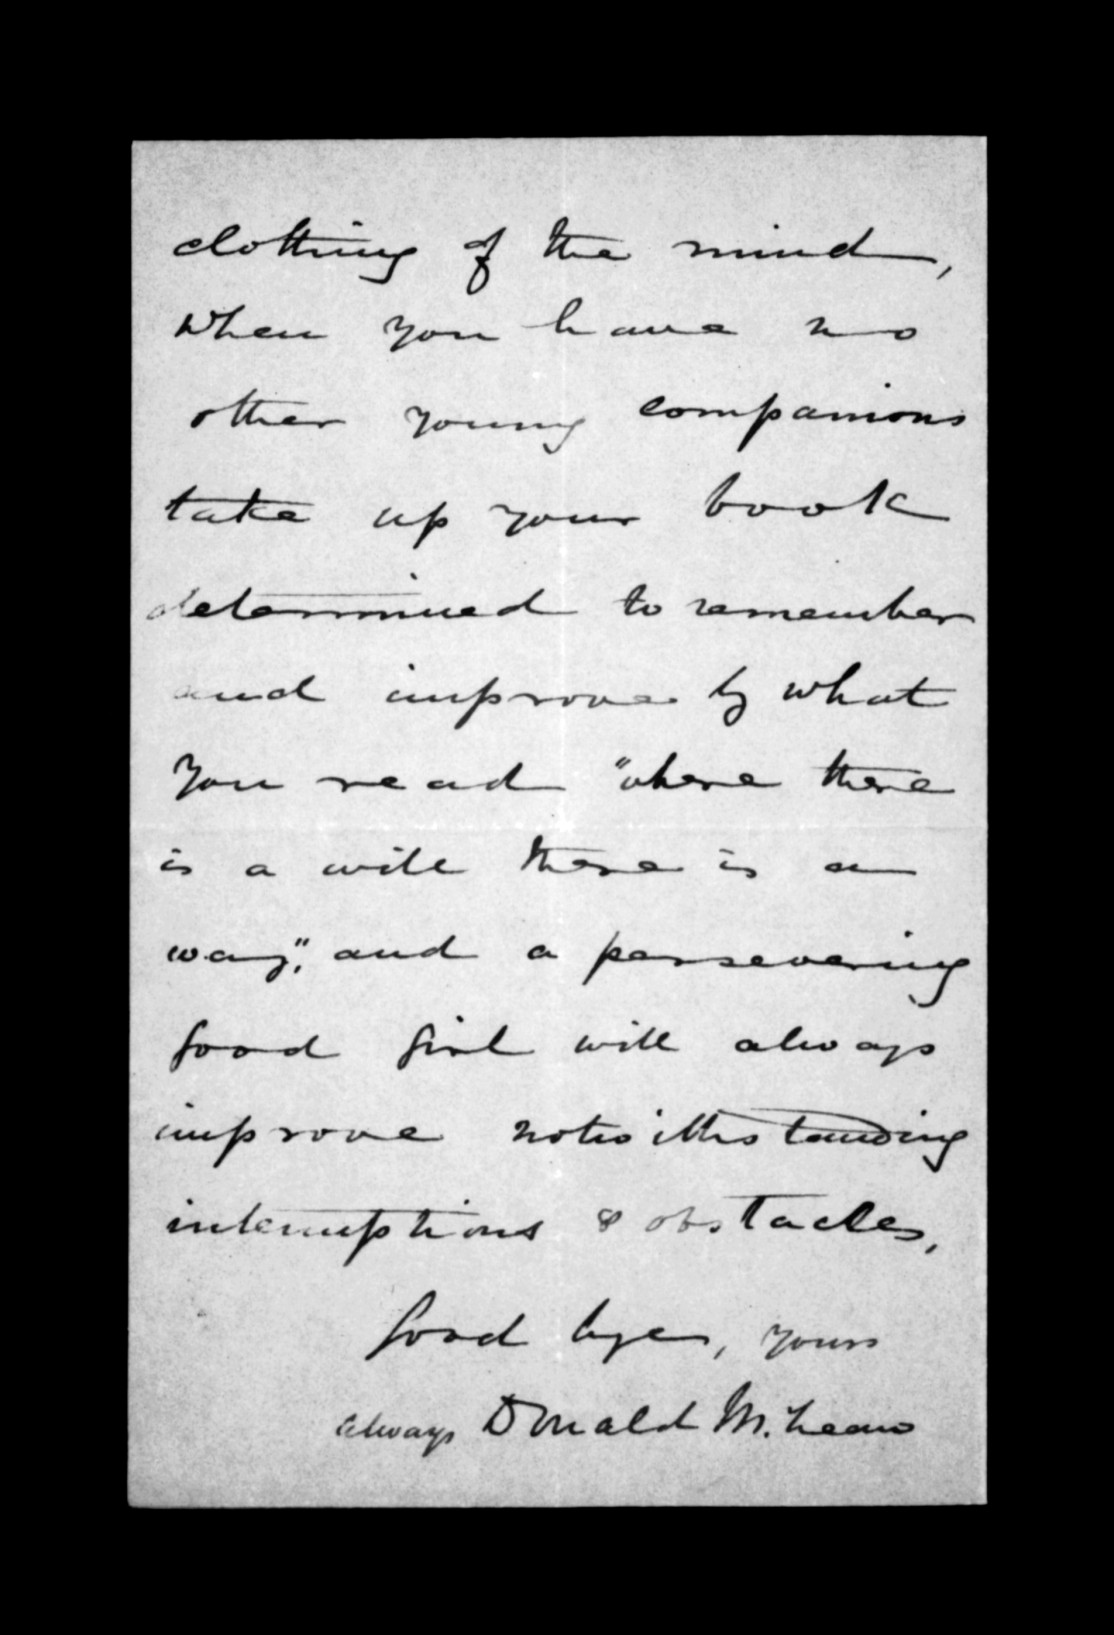 clothing of the mind,
when you have no
other young companions
take up your book
determined to remember
and improve by what
you read "where there
is a will there is a
way", and a persevering
good girl will always
improve notwithstanding
interruptions & obstacles,
Good bye, yours
always Donald McLean